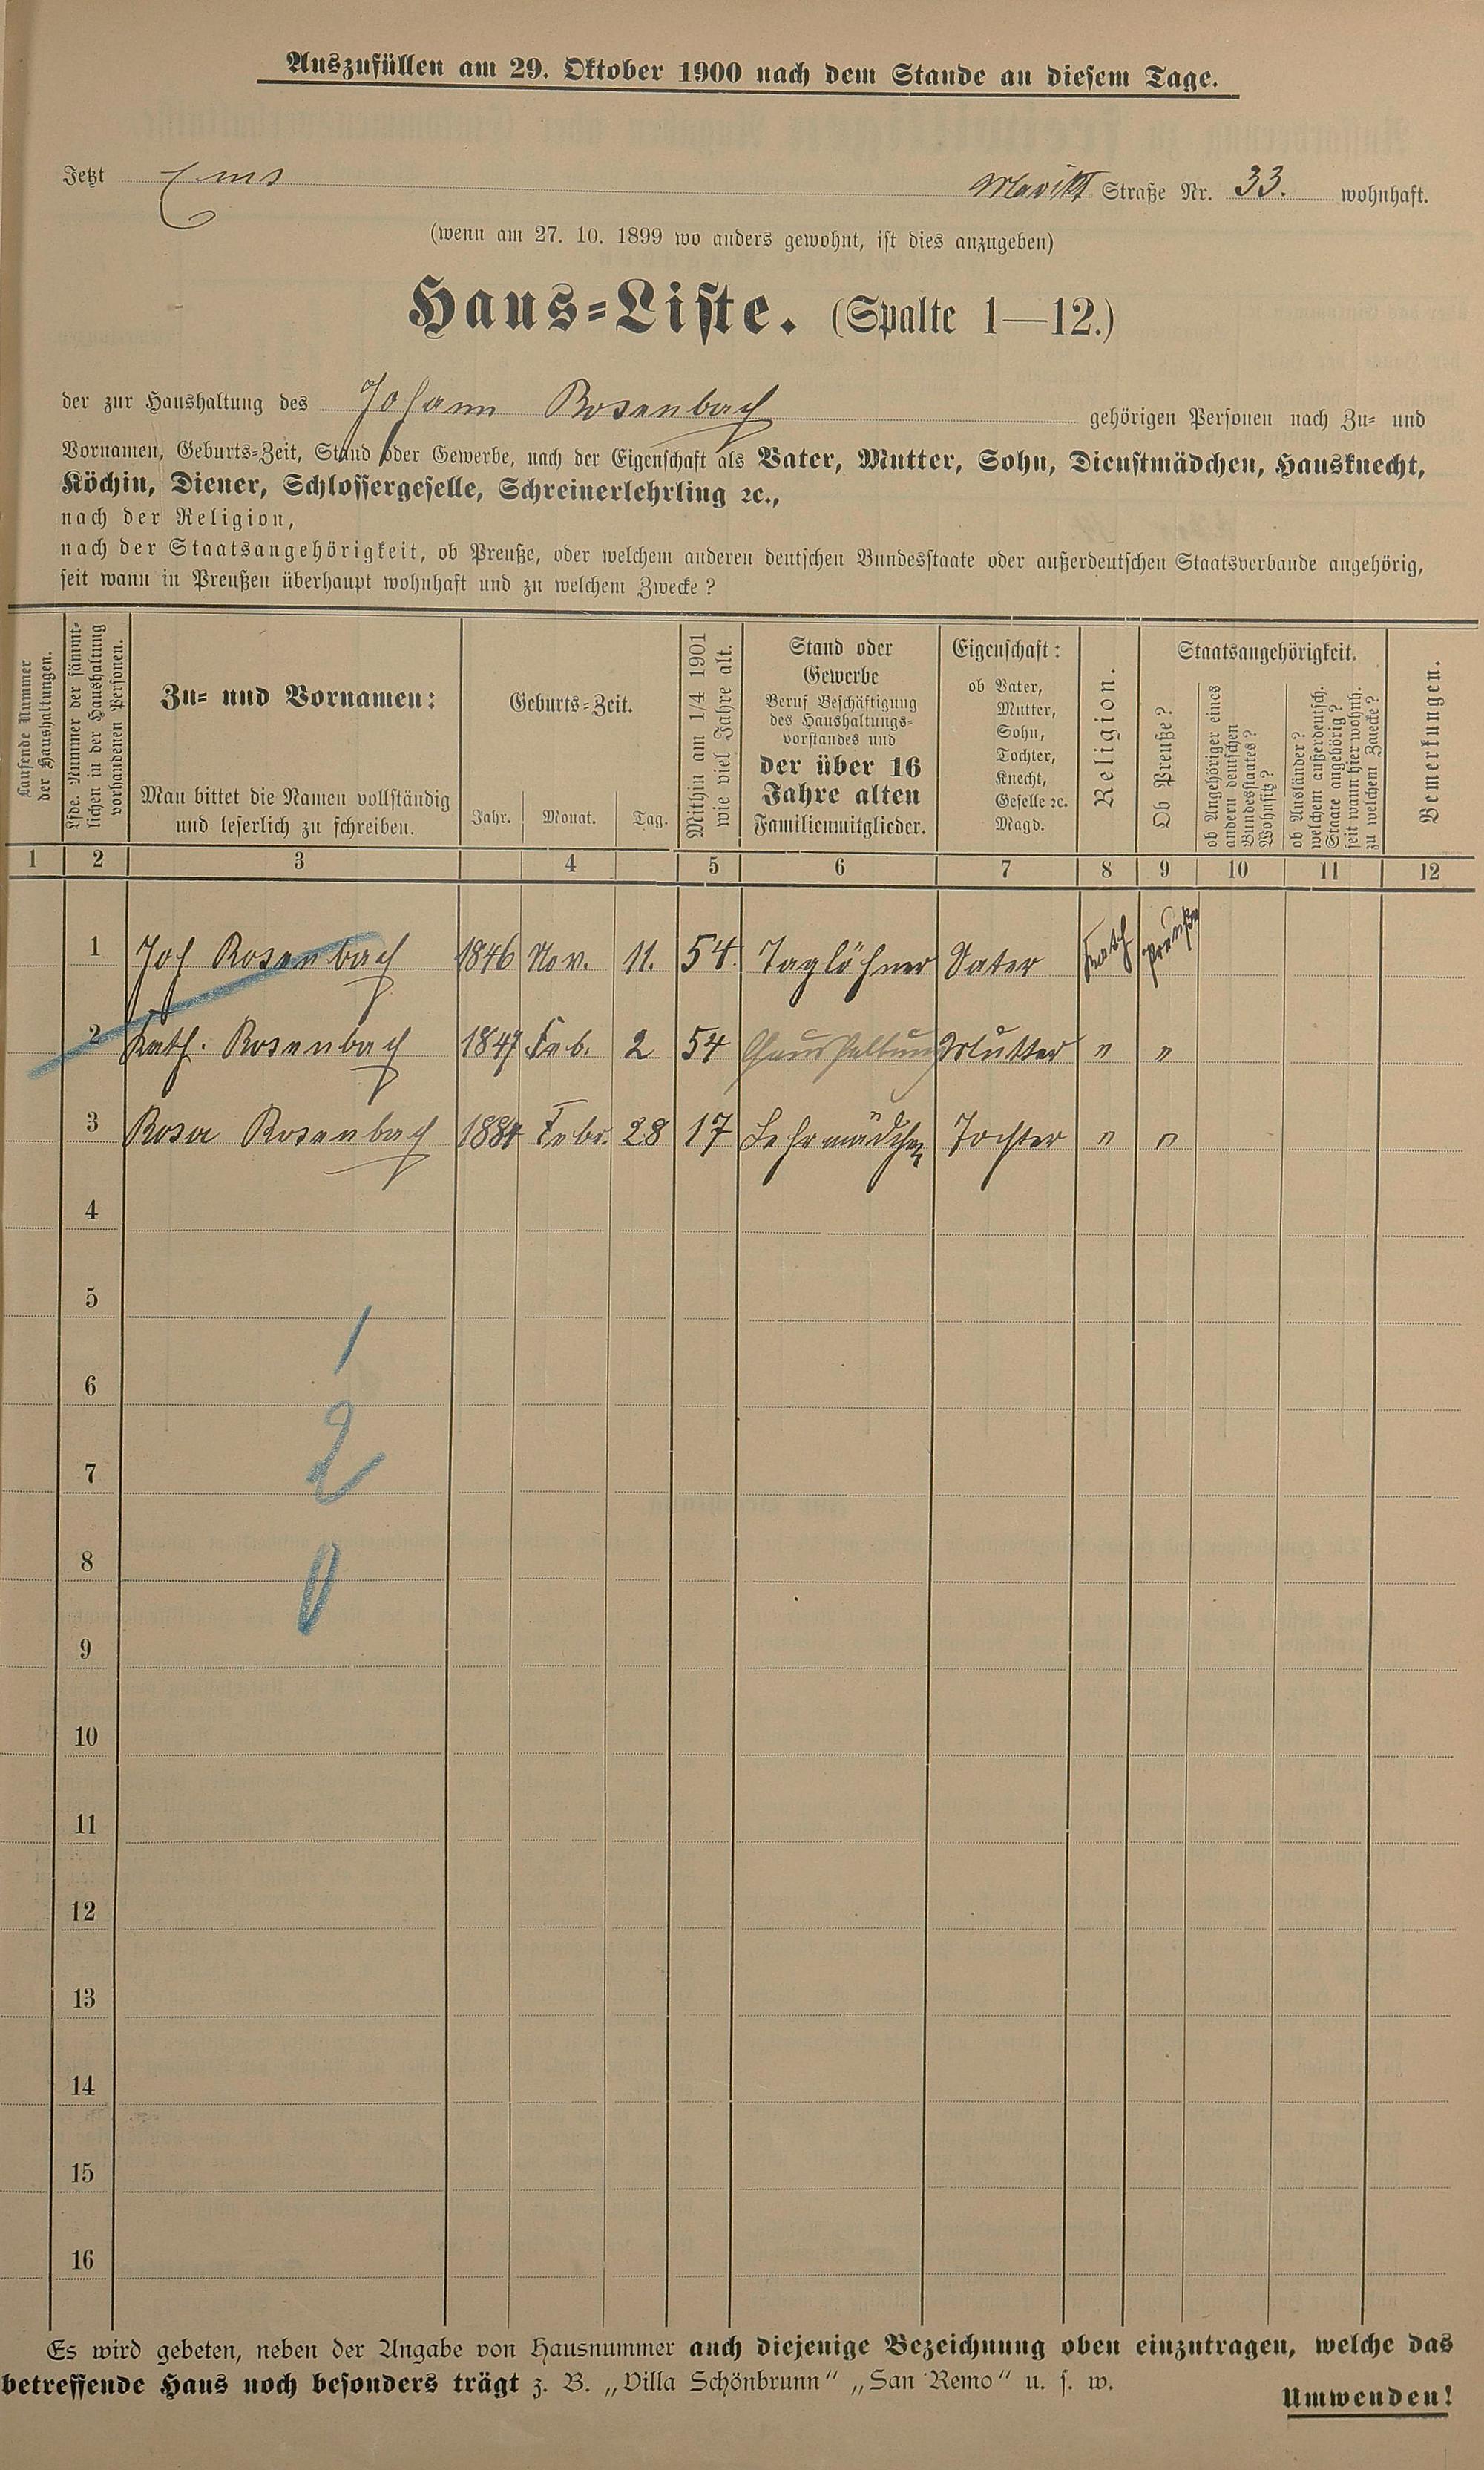 Auszufüllen am 29. Oktober 1900 nach dem Stande an diesem Tage.
Jetzt Ems Markt Straße Nr. 33. wohnhaft.
(wenn am 27. 10. 1899 wo anders gewohnt, ist dies anzugeben)
Haus-Liste. (Spalte 1—12.)
der zur Haushaltung des Johann Rosenbach gehörigen Personen nach Zu- und
Vornamen, Geburts-Zeit, Stand oder Gewerbe, nach der Eigenschaft als Vater, Mutter, Sohn, Dienstmädchen, Hausknecht,
Köchin, Diener, Schlossergeselle, Schreinerlehrling ꝛc.,
nach der Religion,
nach der Staatsangehörigkeit, ob Preuße, oder welchem anderen deutschen Bundesstaate oder außerdeutschen Staatsverbande angehörig,
seit wann in Preußen überhaupt wohnhaft und zu welchem Zwecke?
Laufende Nummer
der Haushaltungen.
Lfde. Nummer der sämmt-
lichen in der Haushaltung
vorhandenen Personen.
Zu- und Vornamen:
Man bittet die Namen vollständig
und leserlich zu schreiben.
Geburts-Zeit.
Jahr. Monat. Tag.
Mithin am 1/4 1901
wie viel Jahre alt.
Stand oder
Gewerbe
Beruf Beschäftigung
des Haushaltungs-
vorstandes und
der über 16
Jahre alten
Familienmitglieder.
Eigenschaft:
ob Vater,
Mutter,
Sohn,
Tochter,
Knecht,
Geselle ꝛc.
Magd.
Religion.
Staatsangehörigkeit.
Ob Preuße?
ob Angehöriger eines
andern deutschen
Bundesstaates?
Wohnsitz?
ob Ausländer?
welchem außerdeutsch.
Staate angehörig?
seit wann hier wohnh.
zu welchem Zwecke?
Bemerkungen.
1 2 3 4 5 6 7 8 9 10 11 12
1 Joh Rosenbach 1846 Nov. 11. 54. Taglöhner Vater Kath Preuße
2 Kath. Rosenbach 1847 Feb. 2 54 Haushaltung Mutter " "
3 Rosa Rosenbach 1884 Febr. 28 17 Lehrmädchen Tochter " "
4
5
1
6
2
7
8
0
9
10
11
12
13
14
15
16
Es wird gebeten, neben der Angabe von Hausnummer auch diejenige Bezeichnung oben einzutragen, welche das
betreffende Haus noch besonders trägt z. B. „Villa Schönbrunn" „San Remo" u. s. w.
Umwenden!